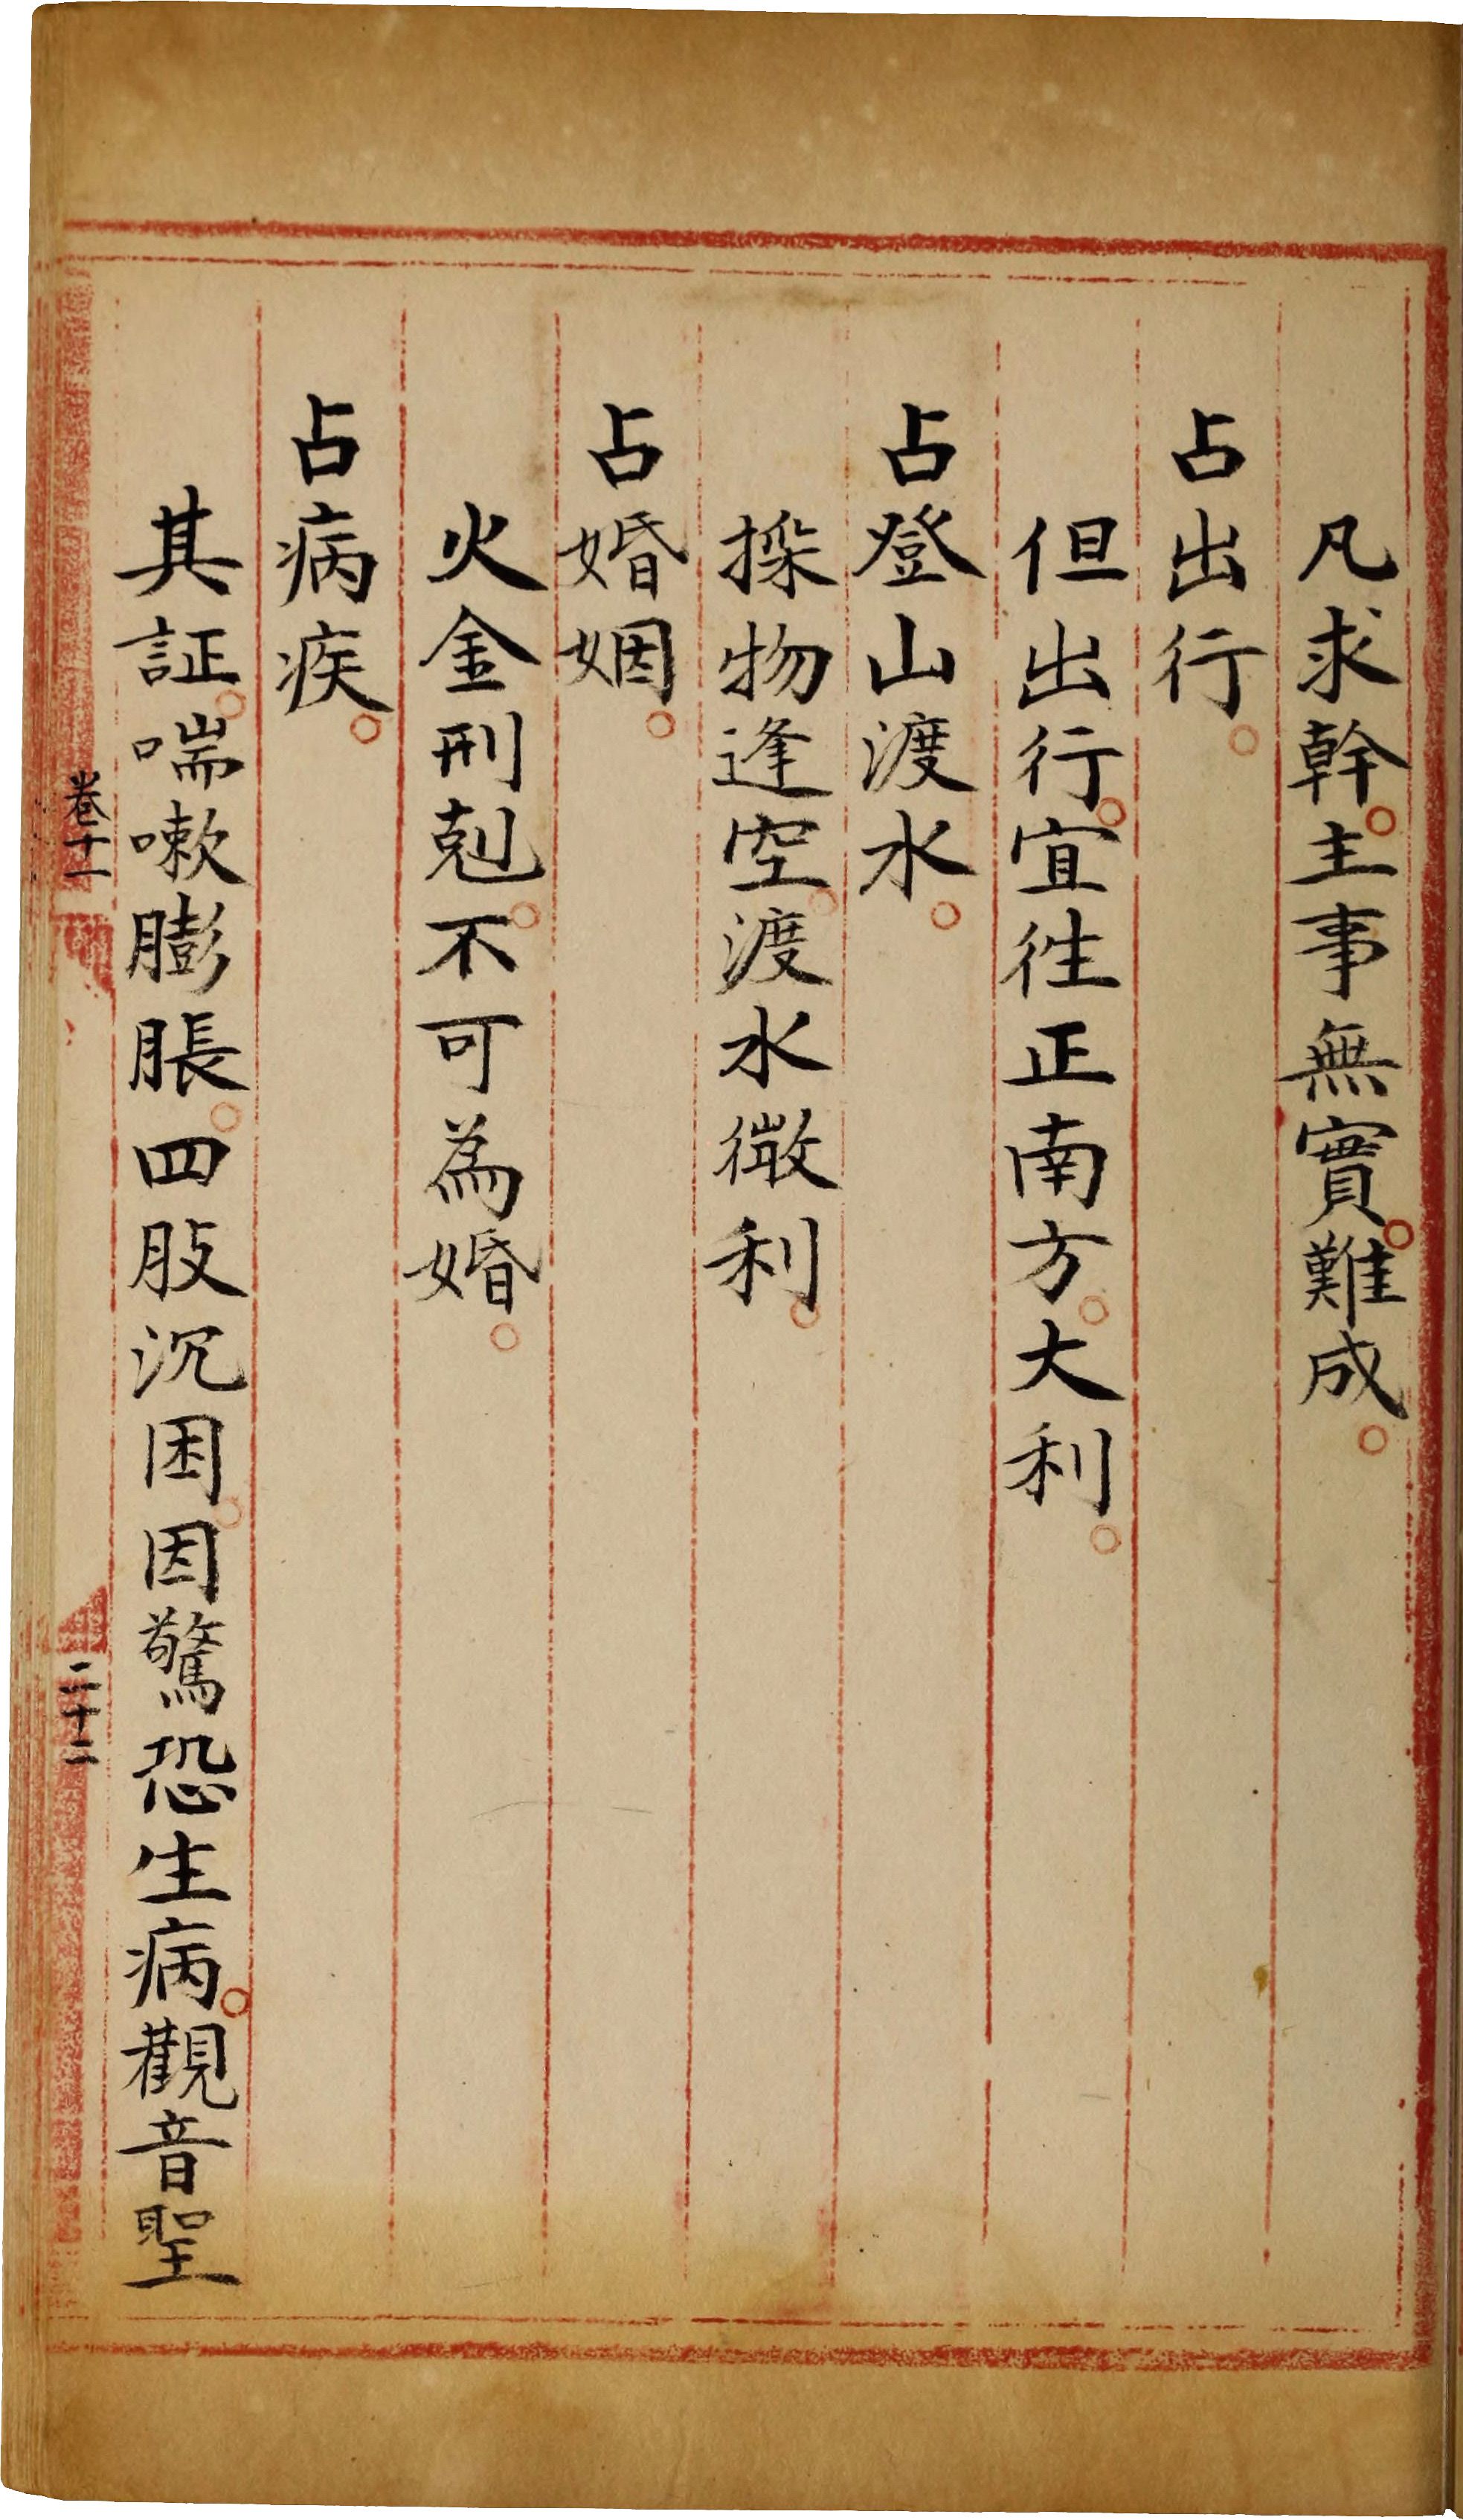 凡求幹。主事無實。難成。
占出行。
但出行。宜徃正南方。大利。
占登山渡水。
採物逢空。渡水微利。
占婚姻。
火金刑剋。不可為婚。
占病疾。
其証。喘嗽膨脹。四肢沉困。因驚恐生病。觀音聖
卷十一
二十二